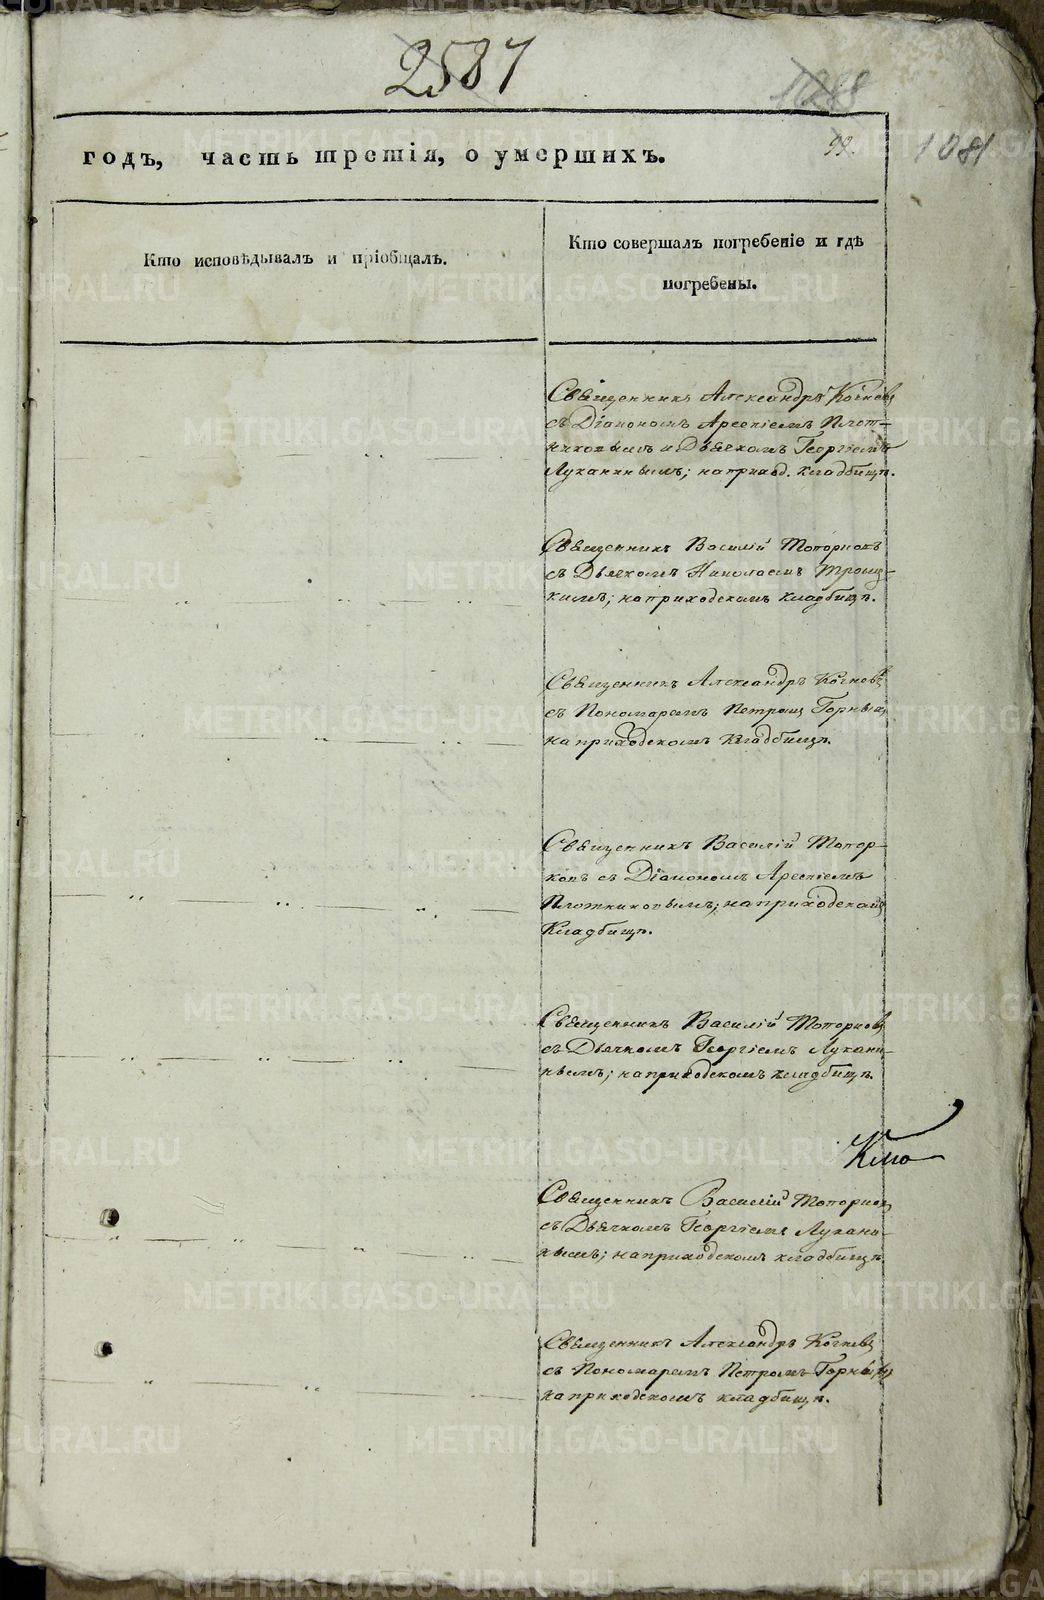 2587
1088
годъ, часть третія, о умершихъ.
99.
1081
Кто исповѣдывалъ и пріобщалъ.
Кто совершалъ погребеніе и гдѣ
погребены.
Священникъ Александръ Кочневъ
съ Діакономъ Арсеніемъ Плот-
никовымъ и Дьячкомъ Георгіемъ
Луканинымъ; на приход. кладбищѣ.
Священникъ Василій Топорковъ
съ Дьячкомъ Николаемъ Троиц-
кимъ; на приходскомъ кладбищѣ.
Священникъ Александръ Кочневъ
съ Пономаремъ Петромъ Горныхъ
на приходскомъ кладбищѣ.
Священникъ Василій Топор-
ковъ съ Діакономъ Арсеніемъ
Плотниковымъ; на приходскомъ
Кладбищѣ.
Священникъ Василій Топорковъ
съ Дьячкомъ Георгіемъ Лукани-
нымъ; на приходскомъ кладбищѣ.
Священникъ Василій Топорковъ
съ Дьячкомъ Георгіемъ Лукани-
нымъ; на приходскомъ кладбищѣ.
Священникъ Александръ Кочневъ
съ Пономаремъ Петромъ Горныхъ
на приходскомъ кладбищѣ.
METRIKI.GASO-URAL.RU